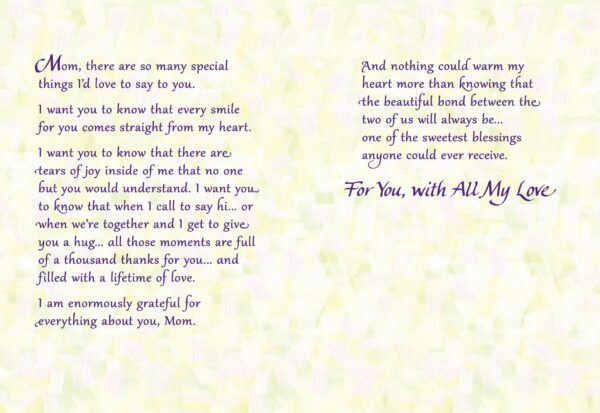 Mom, there are so many special
things I'd love to say to you.
I want you to know that every smile
for you comes straight from my heart.
I want you to know that there are
tears of joy inside of me that no one
but you would understand. I want you
to know that when I call to say hi... or
when we're together and I get to give
you a hug... all those moments are full
of a thousand thanks for you... and
filled with a lifetime of love.
I am enormously grateful for
everything about you, Mom.
And nothing could warm my
heart more than knowing that
the beautiful bond between the
two of us will always be...
one of the sweetest blessings
anyone could ever receive.
For You, with All My Love